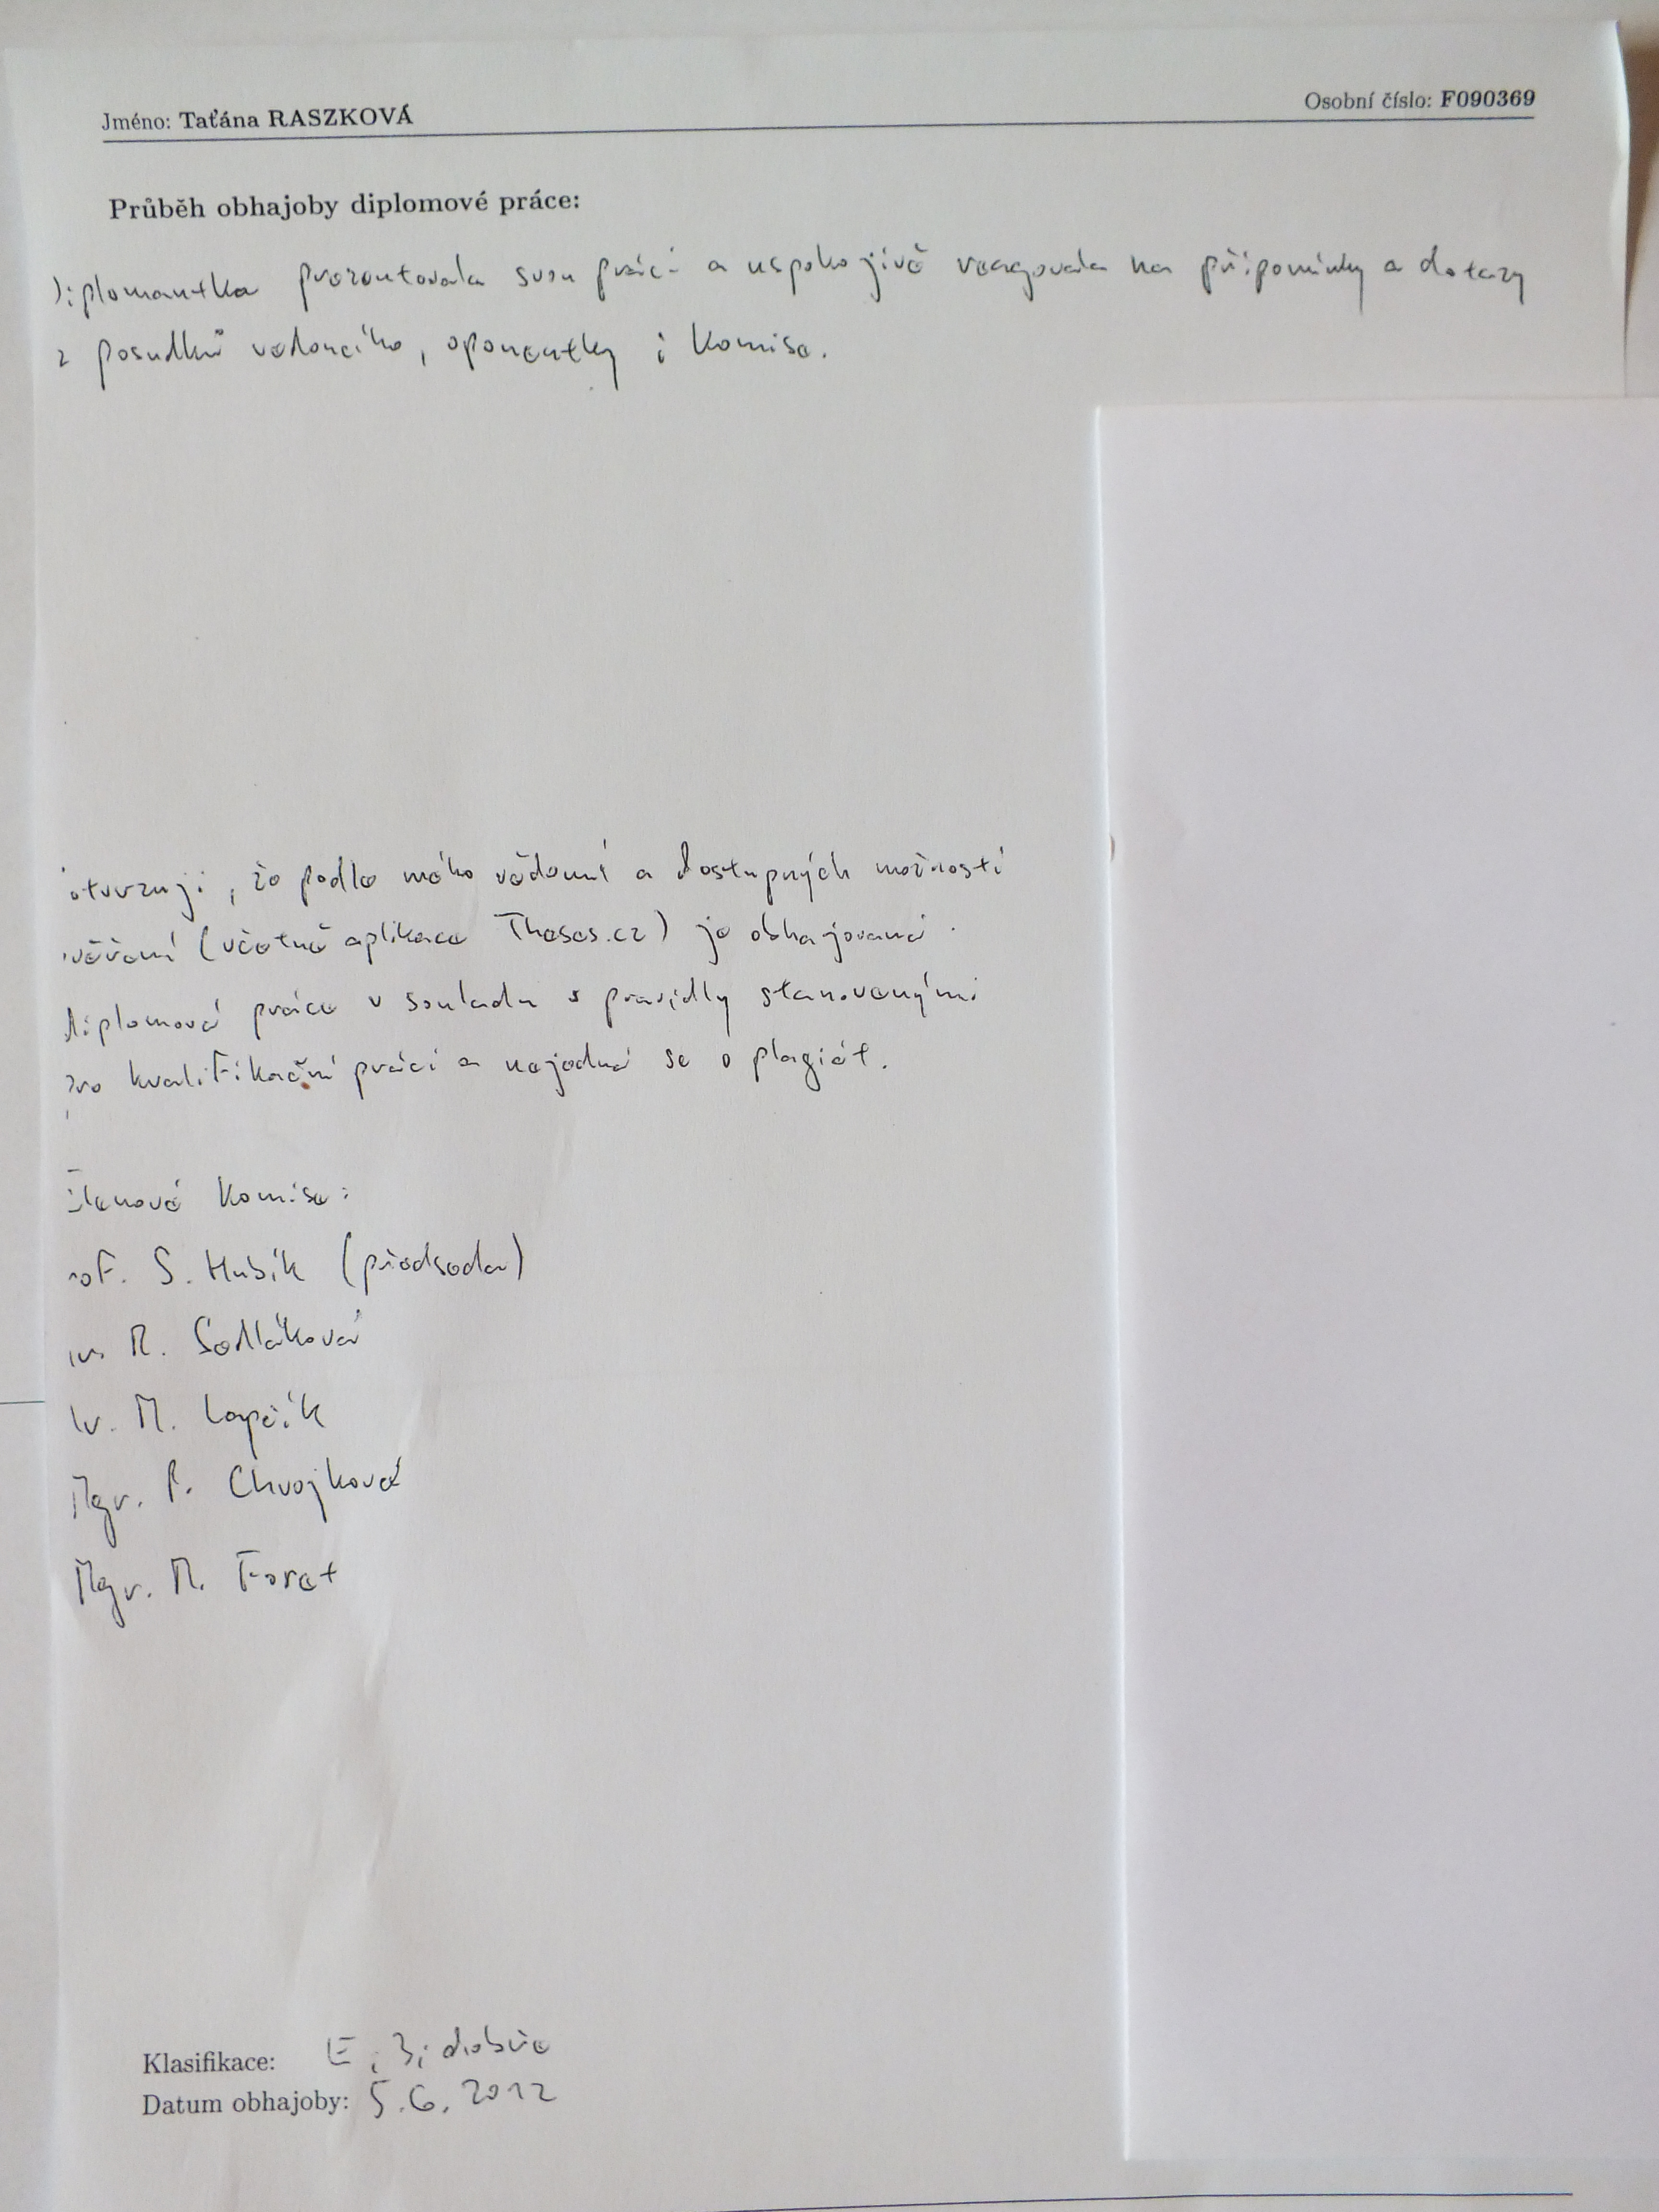 Jméno: Taťána RASZKOVÁ Osobní číslo: F090369
Průběh obhajoby diplomové práce:
Diplomantka prezentovala svou práci a uspokojivě reagovala na připomínky a dotazy
z posudků vedoucího, oponentky i komise.
otvrzuji, že podle mého vědomí a dostupných možností
ověření (včetně aplikace Theses.cz) je obhajovaná
diplomová práce v souladu s pravidly stanovenými
pro kvalifikační práci a nejedná se o plagiát.
Členové komise:
rof. S. Hubík (předseda)
R. Sedláková
M. Lapčík
Mgr. P. Chvojková
Mgr. M. Foret
Klasifikace: E, 3, dobře
Datum obhajoby: 5.6.2012